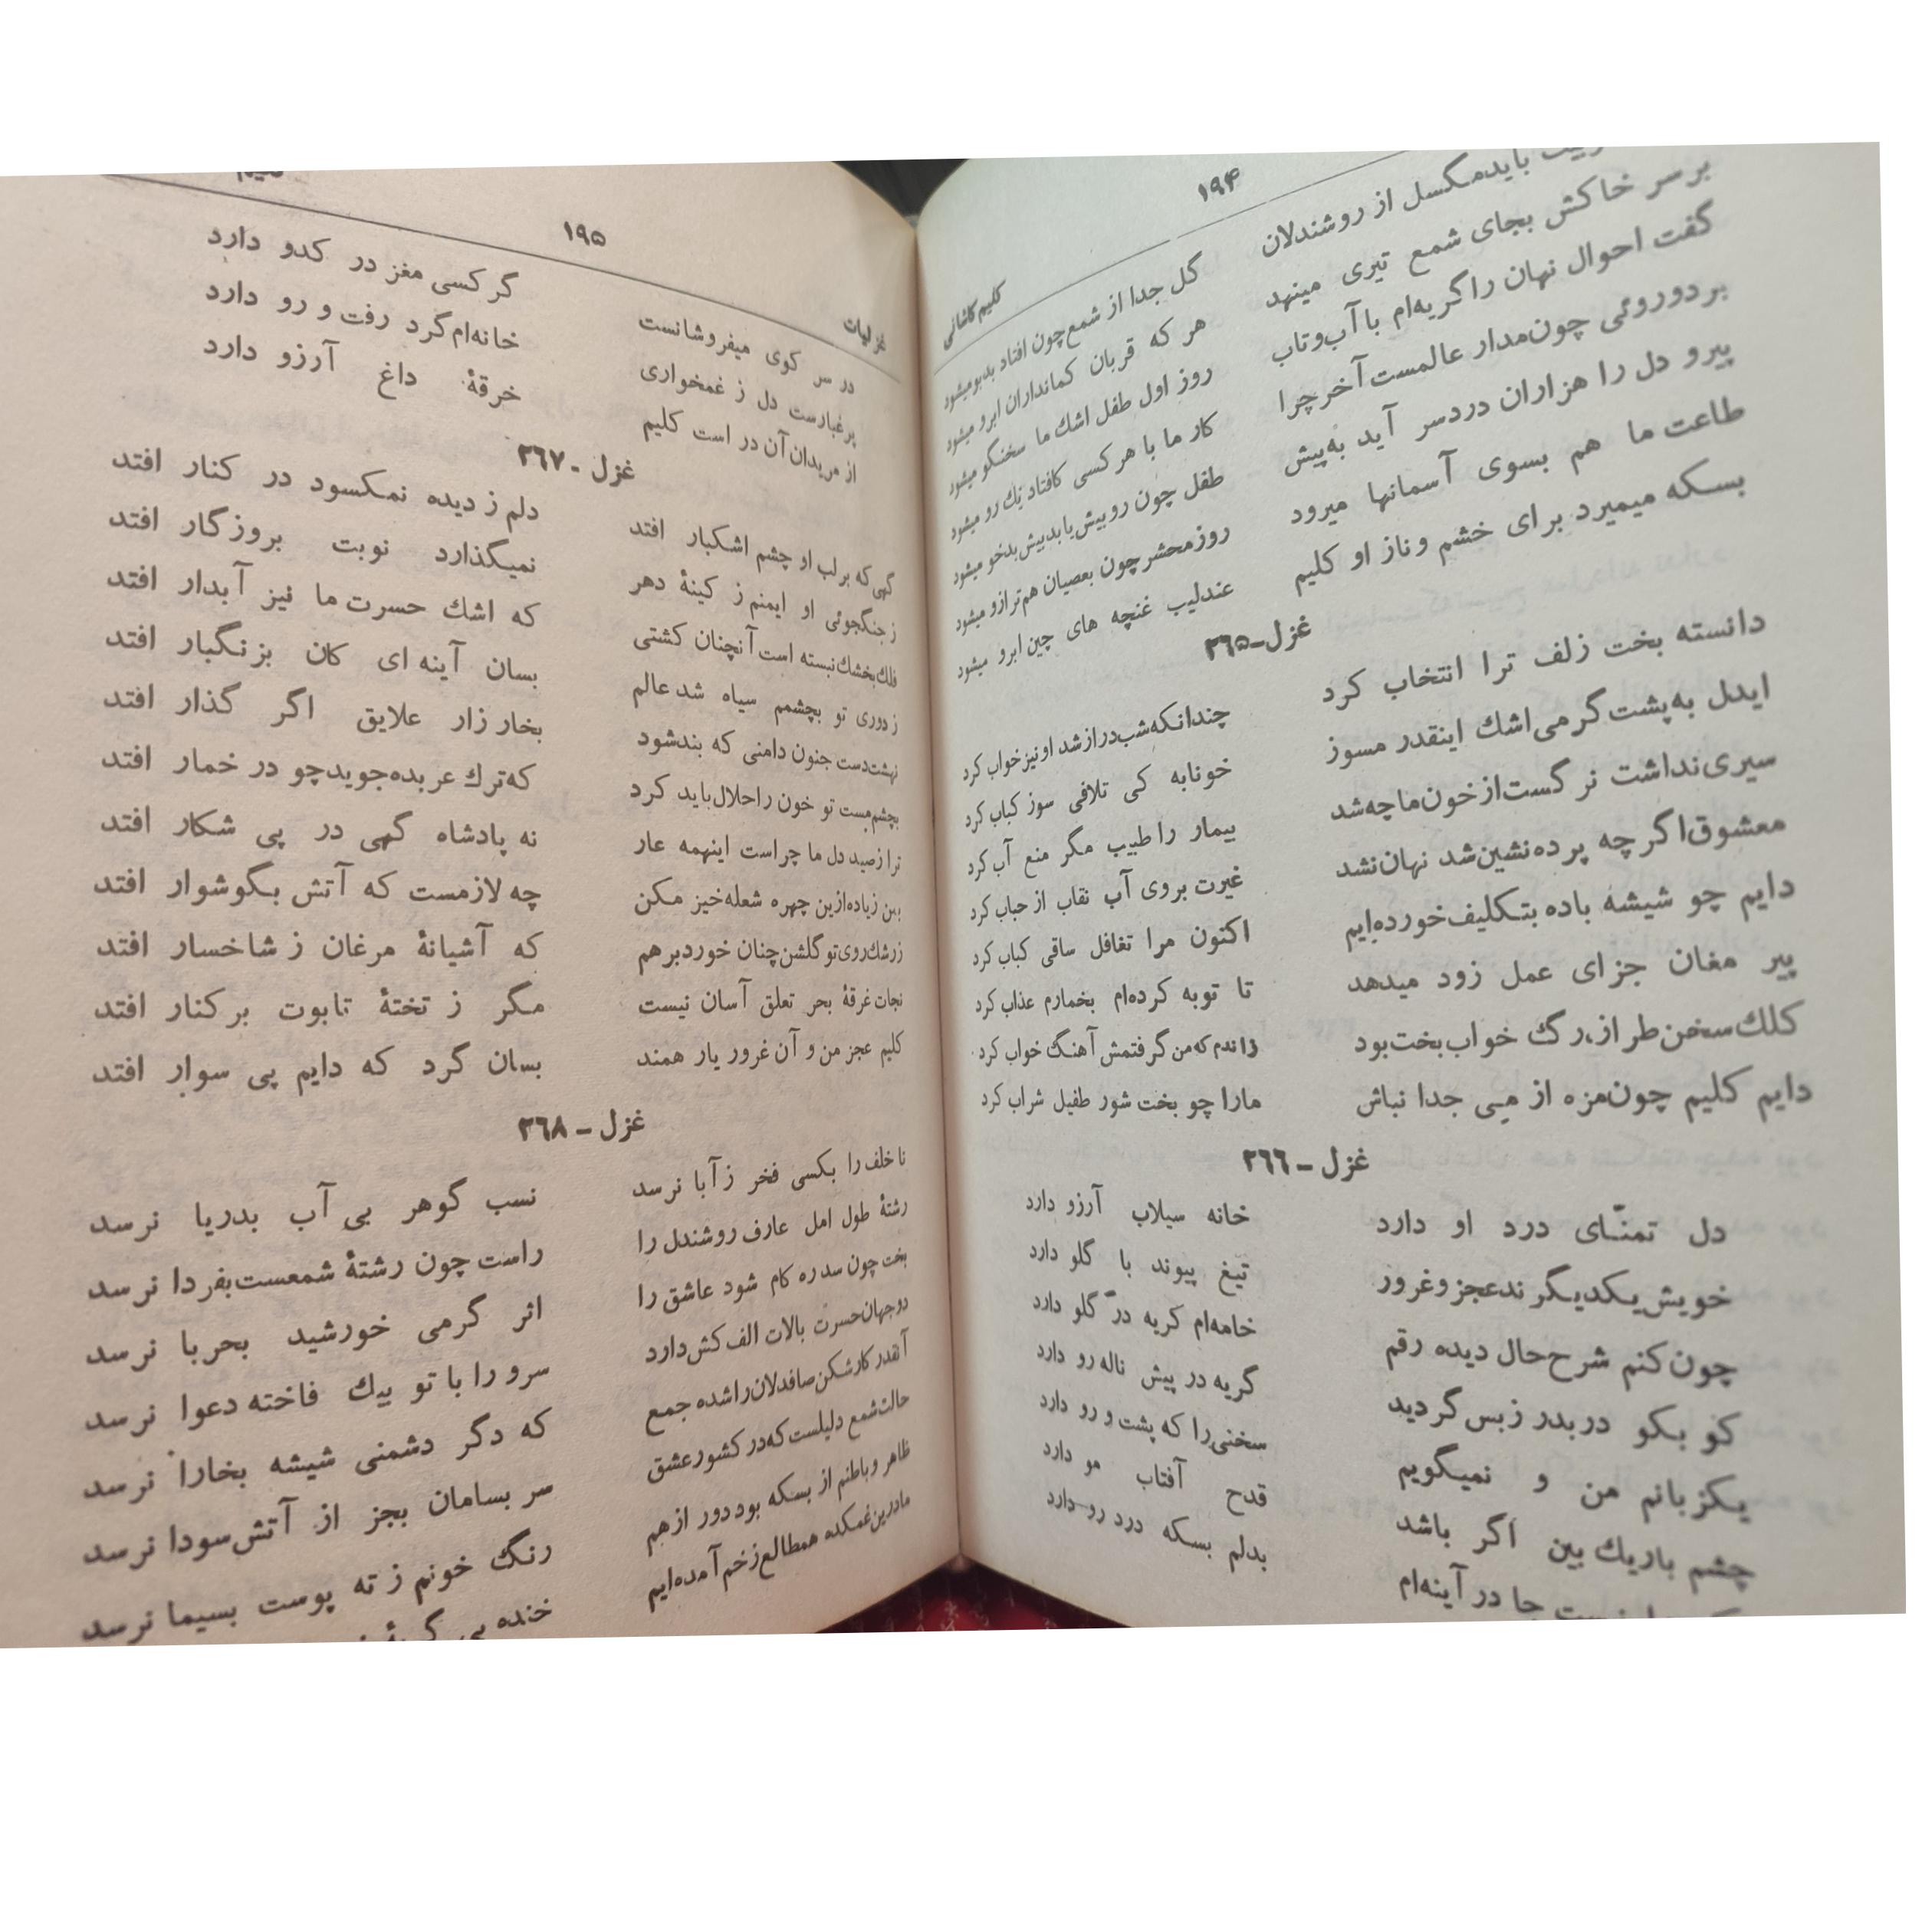 ۱۹۴
کلیم کاشانی
باید مگسل از روشندلان گل جدا از شمع چون افتاد بدبو میشود
بر سر خاکش بجای شمع تیری مینهد هر که قربان کمانداران ابرو میشود
گفت احوال نهان را گریه‌ام با آب و تاب روز اول طفل اشك ما سخنگو میشود
بر دوروئی چون مدار عالمست آخر چرا کار ما با هر کسی کافتاد نیك رو میشود
پیرو دل را هزاران دردسر آید به‌پیش طفل چون رو بیش یابد بیش بدخو میشود
طاعت ما هم بسوی آسمانها میرود روز محشر چون بعصیان هم ترازو میشود
بسکه میمیرد برای خشم و ناز او کلیم عندلیب غنچه های چین ابرو میشود
غزل - ۳۶۵
دانسته بخت زلف ترا انتخاب کرد چندانکه شب دراز شد او نیز خواب کرد
ایدل به‌پشت گرمی اشك اینقدر مسوز خونابه کی تلافی سوز کباب کرد
سیری نداشت نرگست از خون ما چه شد بیمار را طبیب مگر منع آب کرد
معشوق اگر چه پرده نشین شد نهان نشد غیرت بروی آب نقاب از حباب کرد
دایم چو شیشه باده بتکلیف خورده‌ایم اکنون مرا تغافل ساقی کباب کرد
پیر مغان جزای عمل زود میدهد تا توبه کرده‌ام بخمارم عذاب کرد
کلك سخن طراز، رگ خواب بخت بود زاندم که من گرفتمش آهنگ خواب کرد
دایم کلیم چون مزه از می جدا نباش مارا چو بخت شور طفیل شراب کرد
غزل - ۳۶۶
دل تمنّای درد او دارد خانه سیلاب آرزو دارد
خویش یکدیگرند عجز و غرور تیغ پیوند با گلو دارد
چون کنم شرح حال دیده رقم خامه‌ام گریه درّ گلو دارد
کو بکو در بدر ز بس گردید گریه در پیش ناله رو دارد
یکزبانم من و نمیگویم سخنی را که پشت و رو دارد
چشم باریك بین اگر باشد قدح آفتاب مو دارد
نیست جا در آینه‌ام بدلم بسکه درد رو دارد
۱۹۵
غزلیات
در سر کوی میفروشانست گر کسی مغز در کدو دارد
پر غبارست دل ز غمخواری خانه‌ام گرد رفت و رو دارد
از مریدان آن در است کلیم خرقهٔ داغ آرزو دارد
غزل - ۳۶۷
گهی که بر لب او چشم اشکبار افتد دلم ز دیده نمکسود در کنار افتد
ز جنگجوئی او ایمنم ز کینهٔ دهر نمیگذارد نوبت بروزگار افتد
فلك بخشك نبسته است آنچنان کشتی که اشك حسرت ما نیز آبدار افتد
ز دوری تو بچشمم سیاه شد عالم بسان آینه ای کان بزنگبار افتد
نهشت دست جنون دامنی که بند شود بخار زار علایق اگر گذار افتد
بچشم مست تو خون را حلال باید کرد که ترك عربده جوید چو در خمار افتد
ترا ز صید دل ما چراست اینهمه عار نه پادشاه گهی در پی شکار افتد
بمن زیاده ازین چهره شعله خیز مکن چه لازمست که آتش بگوشوار افتد
ز رشك روی تو گلشن چنان خورد برهم که آشیانهٔ مرغان ز شاخسار افتد
نجات غرقهٔ بحر تعلق آسان نیست مگر ز تختهٔ تابوت بر کنار افتد
کلیم عجز من و آن غرور یار همند بسان گرد که دایم پی سوار افتد
غزل - ۳۶۸
ناخلف را بکسی فخر ز آبا نرسد نسب گوهر بی آب بدریا نرسد
رشتهٔ طول امل عارف روشندل را راست چون رشتهٔ شمعست بفردا نرسد
بخت چون سد ره کام شود عاشق را اثر گرمی خورشید بحربا نرسد
دو جهان حسرت بالات الف کش دارد سرو را با تو بیك فاخته دعوا نرسد
آنقدر کار شکن صافدلان را شده جمع که دگر دشمنی شیشه بخارا نرسد
حالت شمع دلیلست که در کشور عشق سر بسامان بجز از آتش سودا نرسد
ظاهر و باطنم از بسکه بود دور از هم رنگ خونم ز ته پوست بسیما نرسد
مادرین غمکده همطالع زخم آمده‌ایم خنده بی گریهٔ